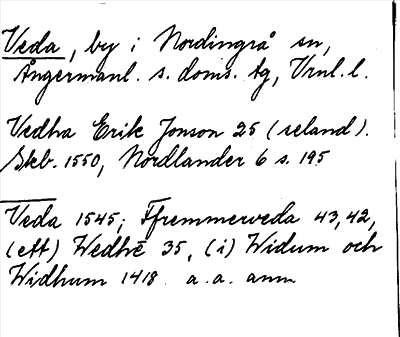 Veda, by i Nordingrå sn,
Ångermanl. s. doms. tg, Vrnl. l.
Vedha Erik Jonson 25 (reland).
Skb. 1550, Nordlander 6 s. 195
Veda 1545; Ffremmerveda 43, 42,
(ett) Wedhē 35, (i) Widum och
Widhum 1418 a. a. anm